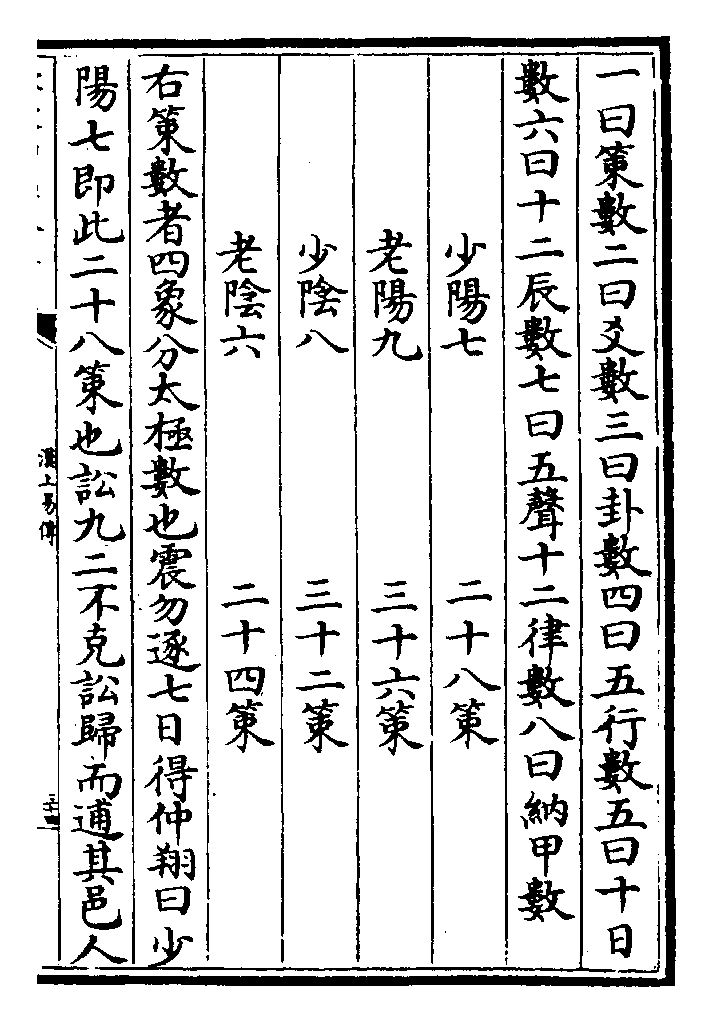 一曰策數二曰爻數三曰卦數四曰五行數五曰十日
數六曰十二辰數七曰五聲十二律數八曰納甲數
少陽七　二十八策
老陽九　三十六策
少陰八　三十二策
老陰六　二十四策
右策數者四象分太極數也震勿逐七日得仲翔曰少
陽七即此二十八策也訟九二不克訟歸而逋其邑人
漢上易傳